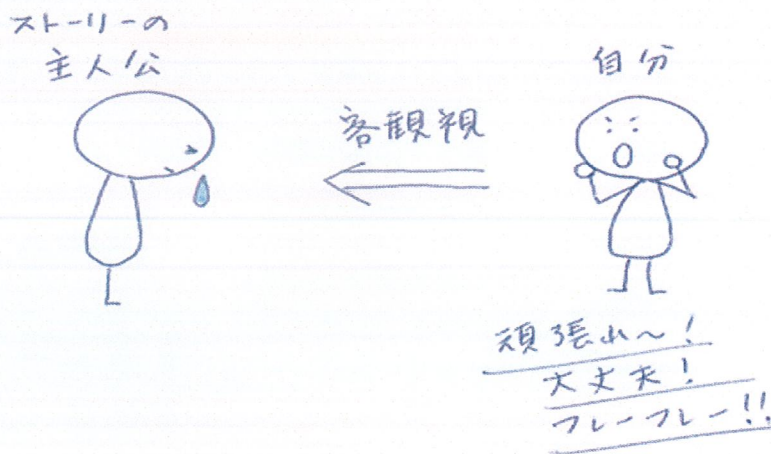 ストーリーの
主人公
自分
客観視
頑張れ～!
大丈夫!
フレーフレー!!